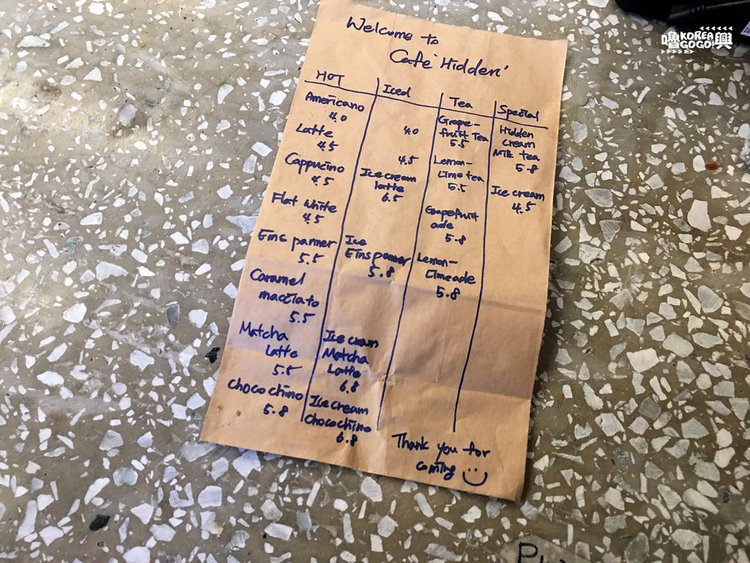 Welcome to
Cafe 'Hidden'
HOT
Americano
4.0
Latte
4.5
Cappucino
4.5
Flat white
4.5
Eins panner
5.5
Caramel
macciato
5.5
Matcha
Latte
5.5
Chocochino
5.8
Iced
4.0
4.5
Ice cream
latte
6.5
Ice
Einspanner
5.8
Ice cream
Matcha
Latte
6.8
Ice cream
Chocochino
6.8
Tea
Grape-
fruit Tea
5.5
Lemon-
Lime tea
5.5
Grapefruit
ade
5.8
Lemon-
Limeade
5.8
Special
Hidden
Cream
Milk tea
5.8
Ice cream
4.5
Thank you for
coming
嚕KOREA
GOGO!興